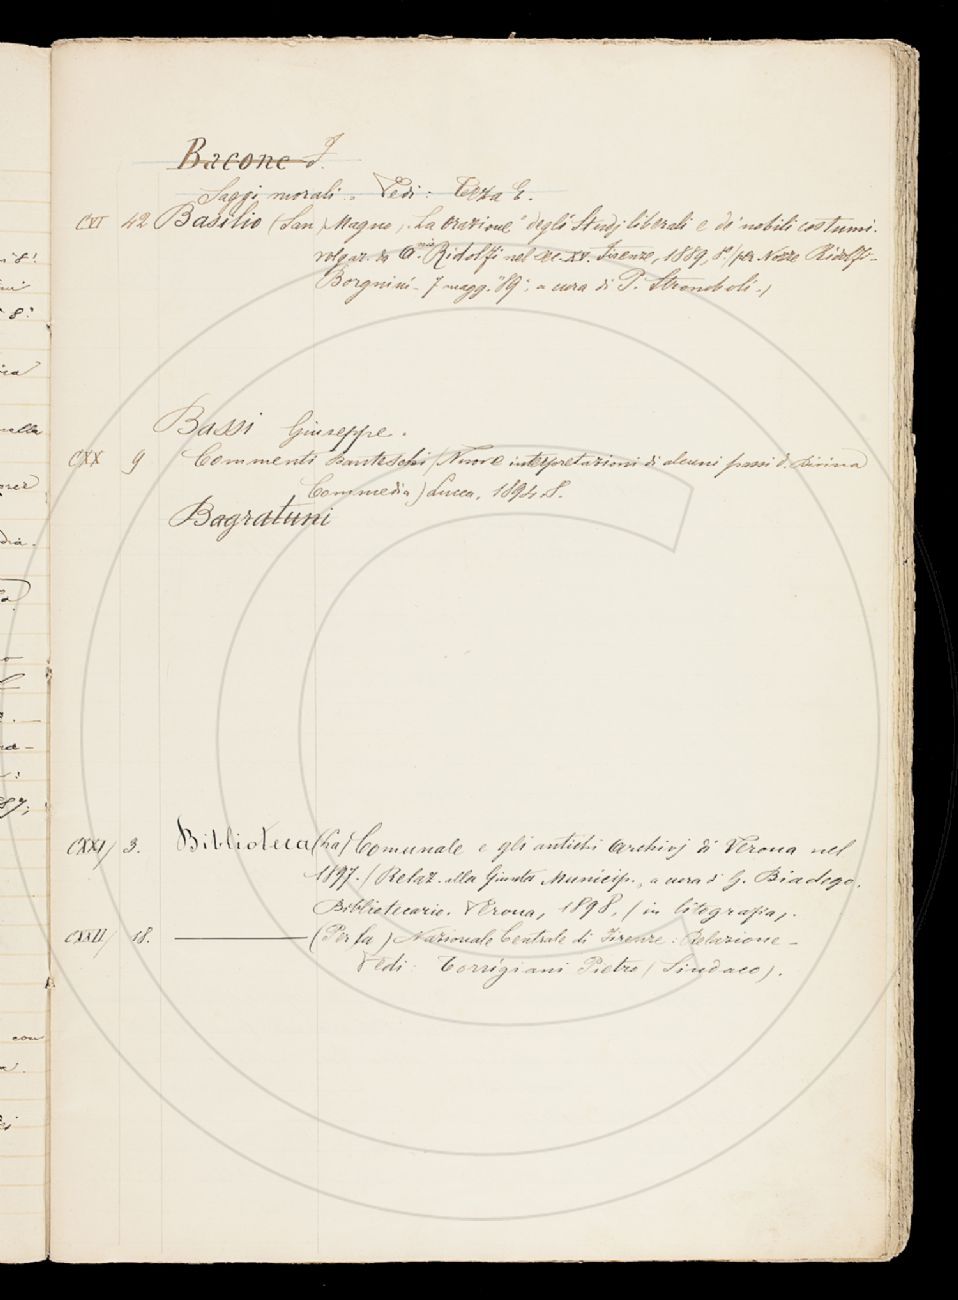 Bacone F.
Saggi morali. Vedi: Teza E.
CXI 42 Basilio (San) Magno. La orazione degli Studj liberali e de' nobili costumi.
volgar. da Ant.nio Ridolfi nel sec. XV. Firenze, 1889, 8º (per Nozze Ridolfi-
Borgnini - 7 magg. '89; a cura di P. Stromboli.)
Bassi Giuseppe.
CXX 9 Commenti danteschi (Nuove interpretazioni di alcuni passi d. Divina
Commedia) Lucca, 1894. 8.
Bagratuni
CXXI/ 3. Biblioteca (La) Comunale e gli antichi Archivj di Verona nel
1897. (Relaz. alla Giunta Municip., a cura di G. Biadego.
Bibliotecario. Verona, 1898. (in litografia).
CXXII/ 18. ——— (Per la) Nazionale Centrale di Firenze: Relazione -
Vedi: Torrigiani Pietro (Sindaco).